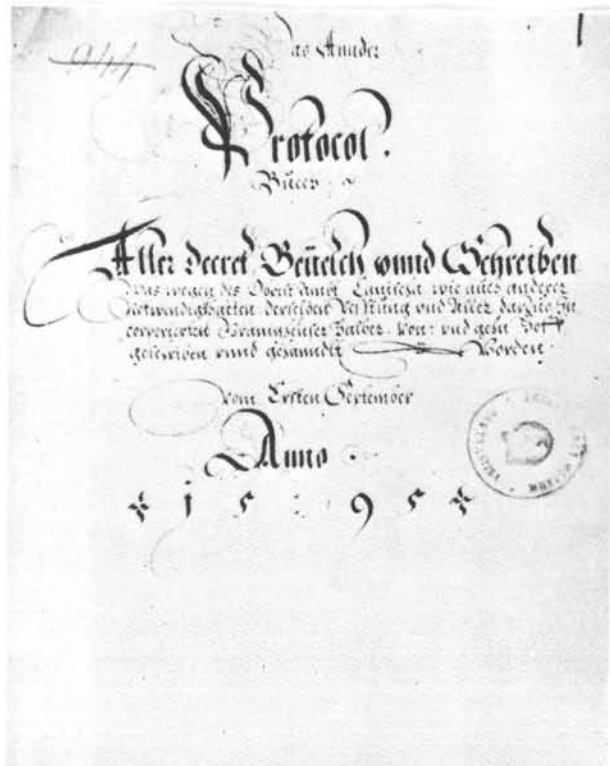 944
Das Annder
Protocol.
Buech
Aller decret Beuelch vnnd Schreiben
Was wegen des Obrist Canisesa wie auch anderer
Notwendigkhaiten derselben Vestung vnd Aller darzue In
corporierten Gräniczheuser halber. Von: vnd gehn Hof
geschriben vnnd gesanndt Worden
vom Ersten September
Anno.
1595